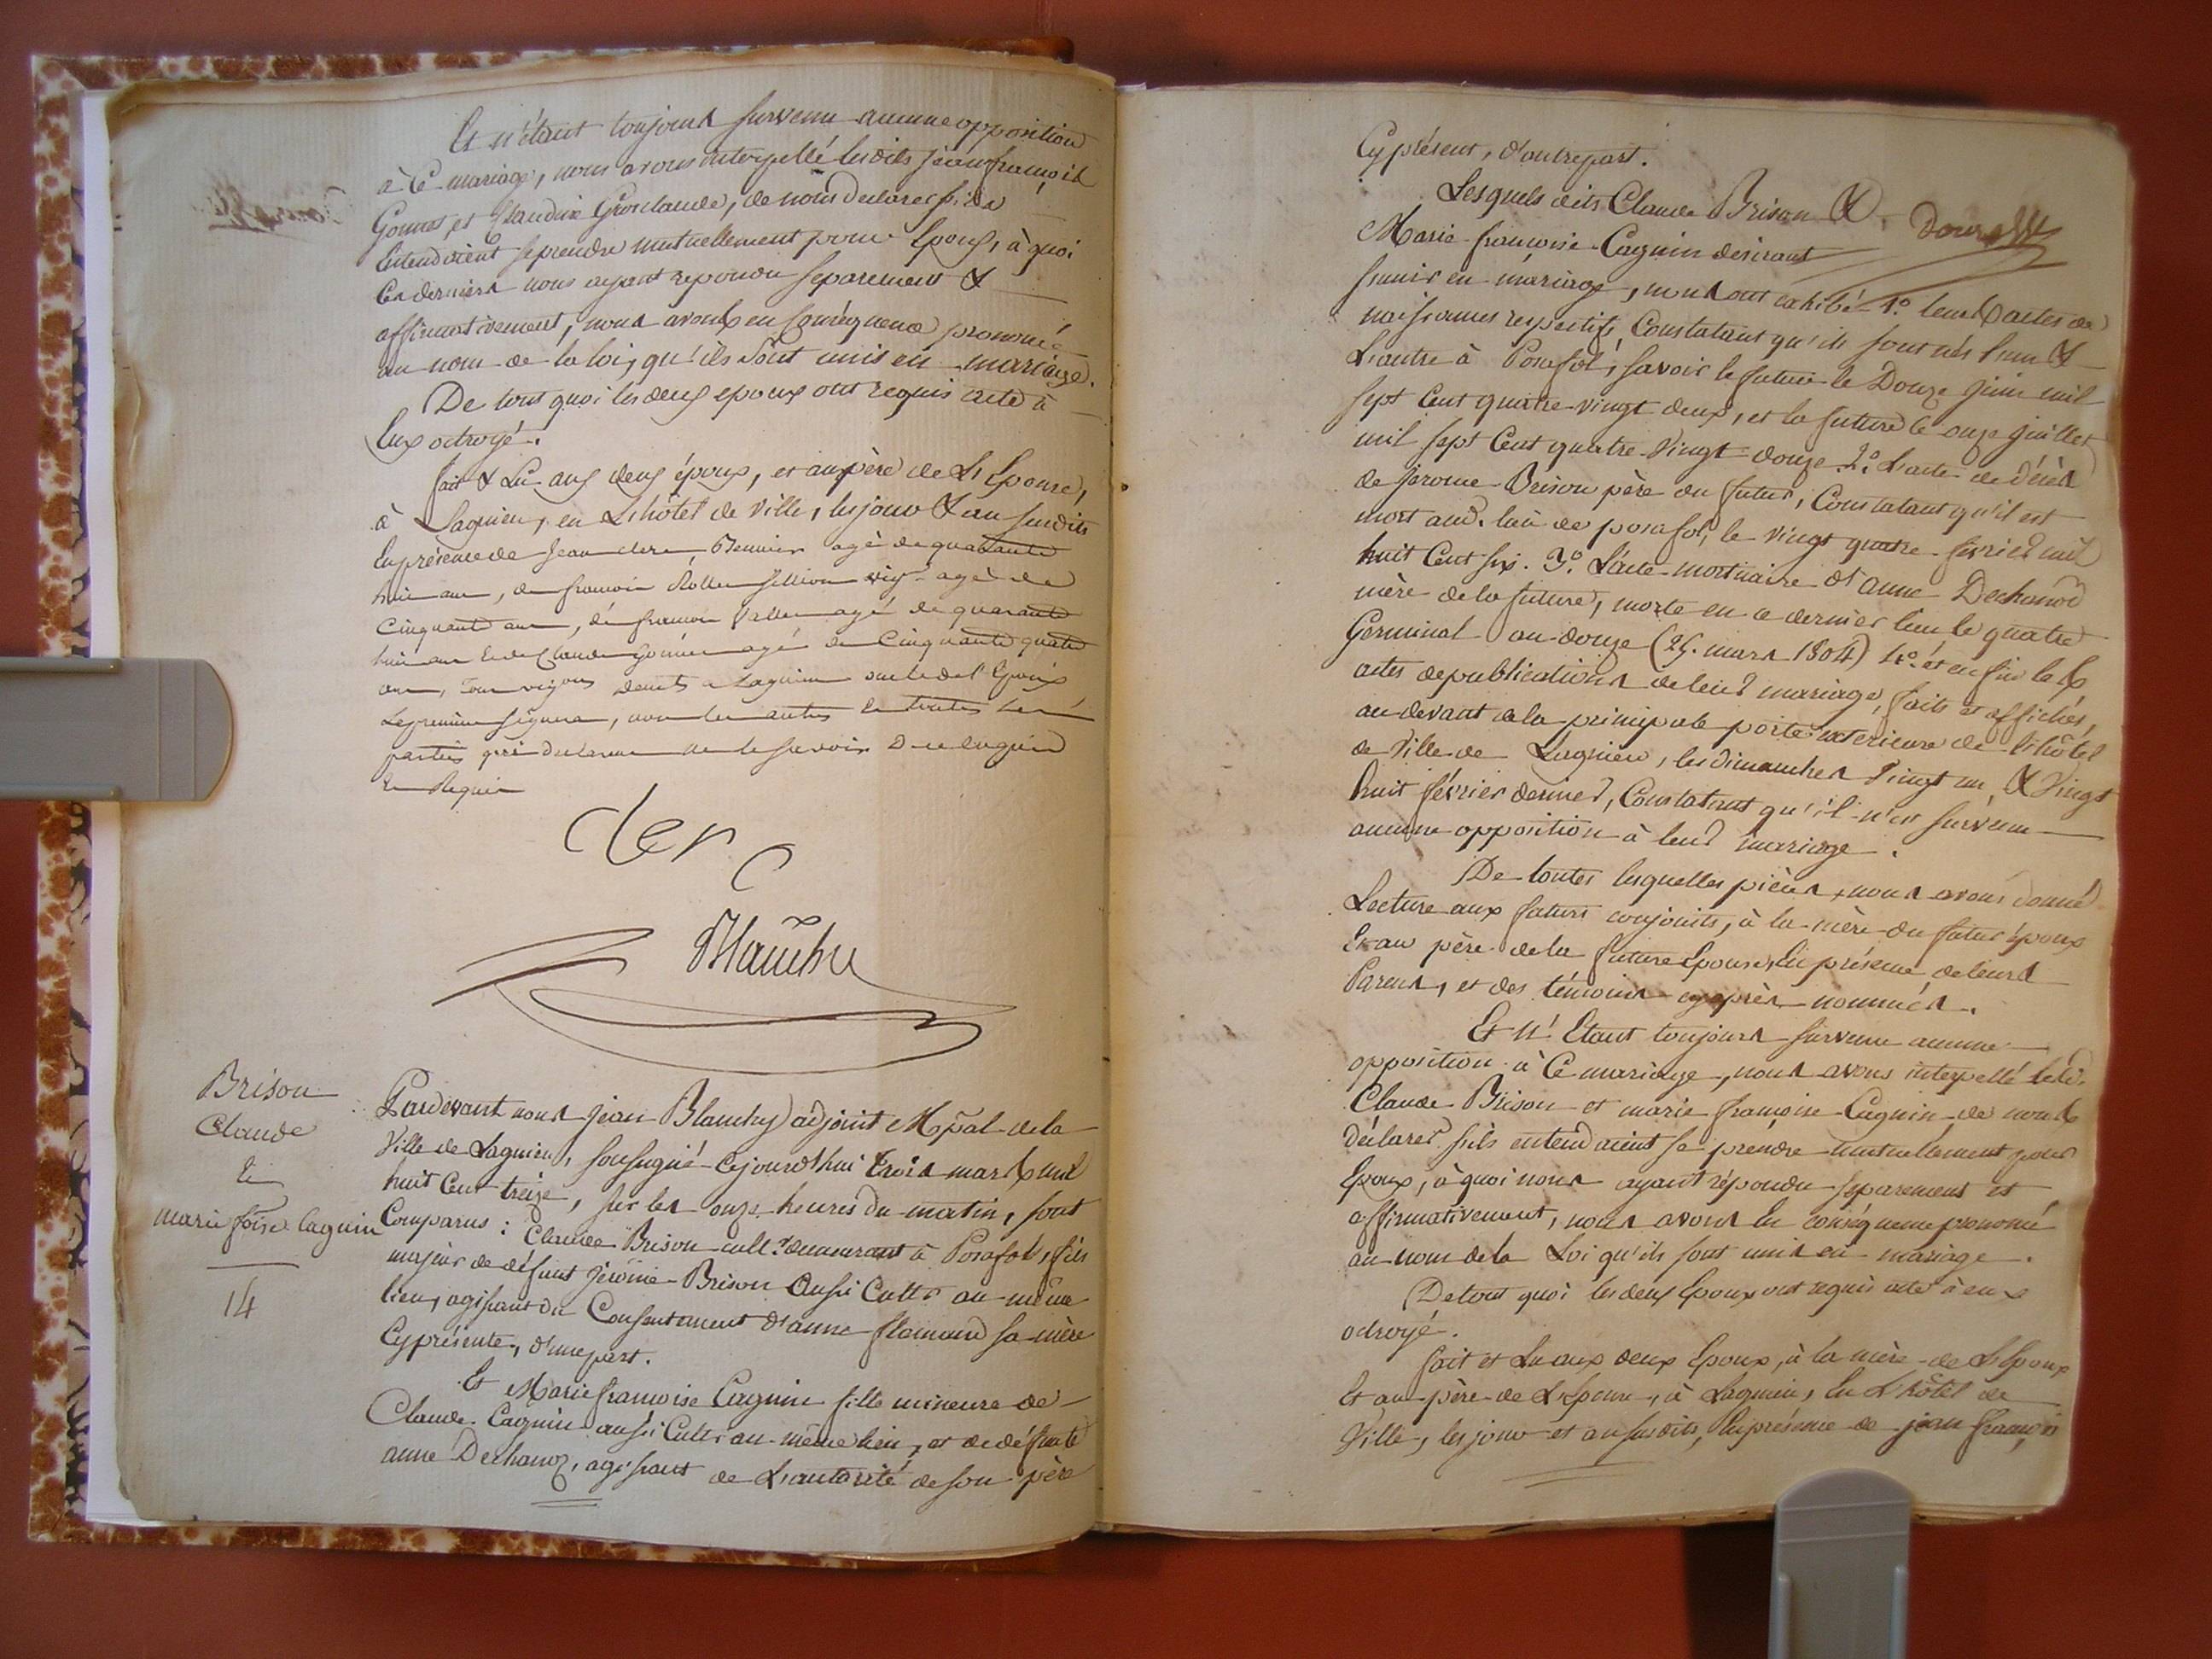 Et n'étant toujours survenu aucune opposition
à ce mariage, nous avons interpellé lesdits jean françois
Gonnet, et Claudine Gronlande, de nous declarer s'ils
Entendoient se prendre mutuellement pour Epoux, à quoi
Ces derniers nous ayant repondu separement &
affirmativement, nous avons en Consequence prononcé
au nom de la loi, qu'ils Sont unis en mariage.
De tout quoi les deux epoux ont requis acte à
Eux octroyé.
fait & Lu aux deux époux, et au père de L'Epouse,
à Lagnieu, en L'hôtel de Ville, les jour & an susdits
En présence de Jean clerc Meunier agé de quarante
huit ans, de françois vig. agé de
Cinquante ans, de françois agé de quarante
huit ans Et de Claude agé de Cinquante quatre
ans, tous vignerons à Lagnieu de l'Epoux
Le premier signera, non les autres Et toutes les
parties qui ont declaré ne le savoir De ce enquis
Et Requis
Clerc
Blanchy
Brison
Claude
Et
marie f.oise Caguin
14
Pardevant nous jean Blanchy adjoint M.pal de la
Ville de Lagnieu, soussigné Cejourd'hui trois mars mil
huit Cent treize, sur les onze heures du matin, sont
Comparus : Claude Brison cult.r demeurant à Posafol, fils
majeur de défunt Jerôme Brison Aussi Cult.r au même
lieu, agissant du Consentement d'anne flamand sa mère
Cyprésente, d'une part.
Et Marie françoise Caguin fille mineure de
Claude Caguin aussi Cult.r au même lieu, et de défunte
anne Dechanoz, agissant de L'autorité de son père
Cy présent, d'autre part.
Lesquels dits Claude Brison &
Marie françoise Caguin desirant
s'unir en mariage, nous ont exhibé 1.° leurs actes de
naissances respectifs Constatant qu'ils sont nés l'un &
L'autre à Posafol, savoir le futur le Douze juin mil
sept Cent quatre-vingt deux, et la future le onze juillet
mil sept Cent quatre-Vingt-douze 2.° L'acte de Décès
de Jerome Brison père du futur, Constatant qu'il est
mort aud. lieu de posafol, le vingt quatre février mil
huit Cent six. 3.° L'acte mortuaire d'anne Dechanoz
mère de la future, morte en ce dernier lieu le quatre
Germinal an douze (25. mars 1804) 4.° et enfin les
actes de publications de leur mariage, faits et affichés,
au devant de la principale porte exterieure de L'hôtel
de Ville de Lagnieu, les dimanches Vingt un & Vingt
huit février dernier, Constatant qu'il n'est survenu
aucune opposition à leur mariage.
De toutes lesquelles pièces, nous avons donné
Lecture aux futurs conjoints, à la mère du futur époux
Et au père de la future Epouse, En présence de leurs
Parens, et des témoins cy après nommés.
Et N'Etant toujours survenu aucune
opposition à Ce mariage, nous avons interpellé lesd.
Claude Brison et marie françoise Caguin de nous
déclarer s'ils entendaient se prendre mutuellement pour
Epoux, à quoi nous ayant répondu separement et
affirmativement, nous avons En conséquence prononcé
au nom de la Loi qu'ils sont unis en mariage.
De tout quoi les deux Epoux ont requis acte à eux
octroyé.
fait et Lu aux deux Epoux, à la mère de L'Epoux
Et au père de L'Epouse, à Lagnieu, En L'hôtel de
Ville, les jour et an susdits, En présence de jean françois